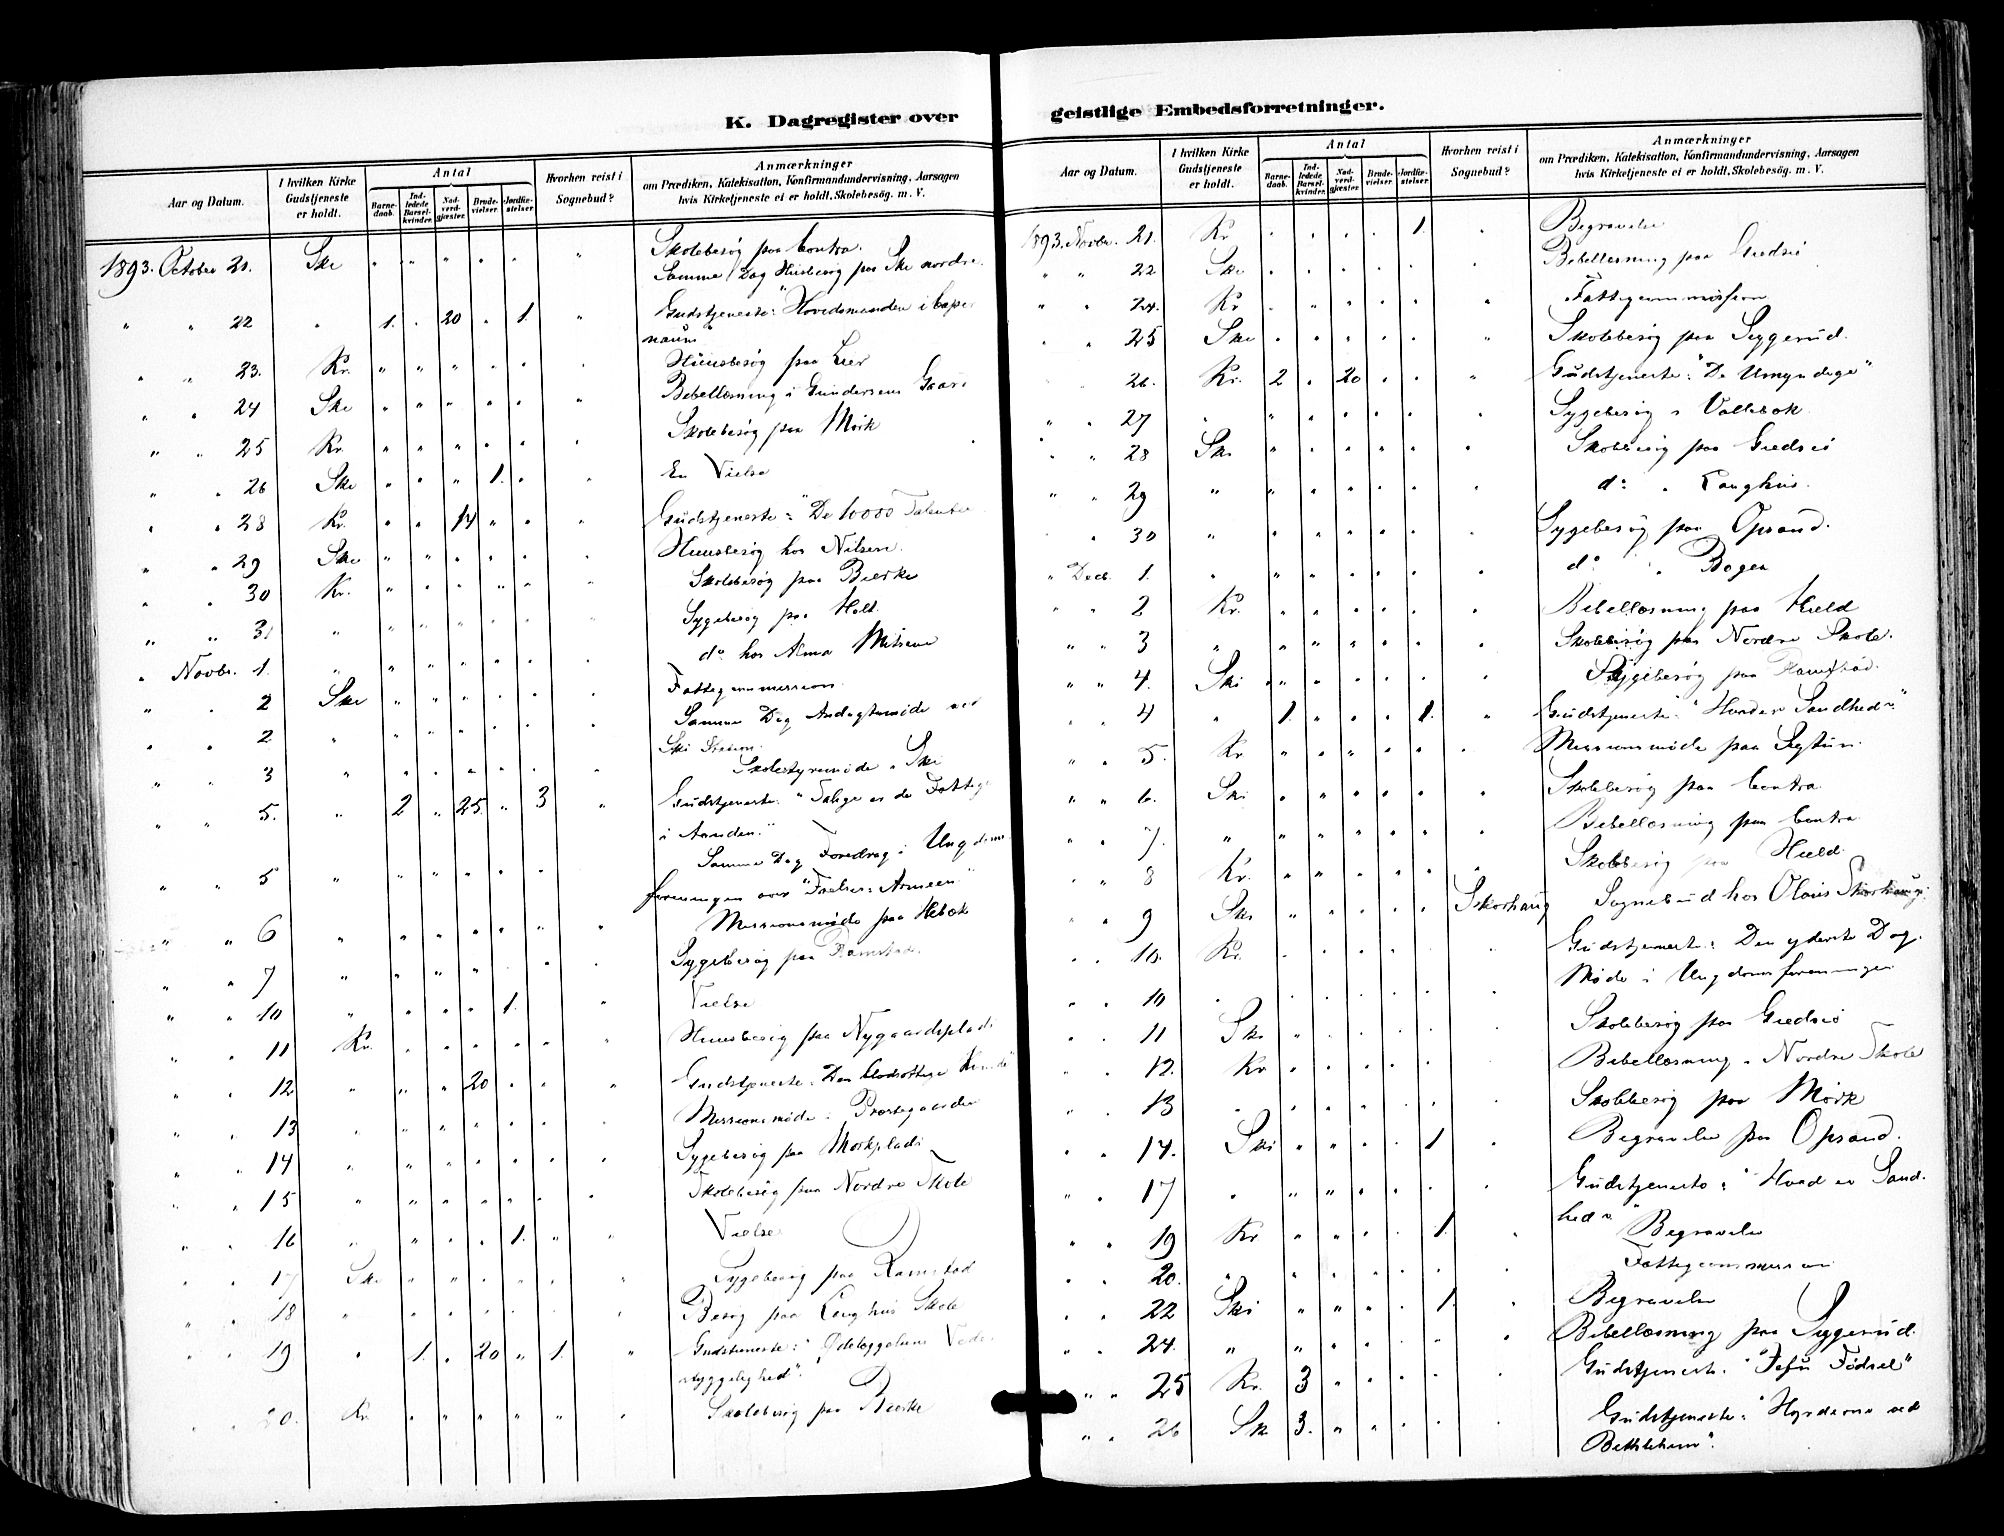 K. Dagregister over
Aar og Datum.
I hvilken Kirke Gudstjeneste er holdt.
Antal
Barnedaab.
Indledede Barselkvinder.
Nadverdgjæster.
Brudevielser.
Jordfæstelser.
Hvorhen reist i Sognebud?
Anmærkninger
om Prædiken, Katekisation, Konfirmandundervisning, Aarsagen
hvis Kirketjeneste ei er holdt, Skolebesøg. m. V.
1893. October 21. Ske " " " " " " Skolebesøg paa Contra.
Samme Dag Husbesøg paa Ske nordre.
" " 22 " 1. " 20 " 1. " Gudstjeneste: "Hovedsmanden i Caper
naum"
" " 23. Kr. " " " " " " Huusbesøg paa Lier
" " 24 Ske " " " " " " Bibellæsning i Gundersens Gaard
" " 25 Kr. " " " " " " Skolebesøg paa Mørk
" " 26 Ske " " " 1. " " En Vielse
" " 28 Kr. " " 14 " " " Gudstjeneste: "De 10000 Talenter
" " 29 Ske " " " " " " Huusbesøg hos Nilsen.
" " 30 Kr. " " " " " " Skolebesøg paa Bierke
" " 31 " " " " " " " Sygebesøg paa Holt.
" Novbr. 1. " " " " " " " do hos Alma
" " 2 Ske " " " " " " Fattigcommission.
" " 2 " " " " " " " Samme Dag Andagtsmøde ved
Ski Station.
" " 3 " " " " " " " Skolestyremøde " Ski
" " 5. " 2 " 25. " 3 " Gudstjeneste: "Salige er de Fattige
i Aanden."
" " 5 " " " " " " " Samme Dag Foredrag i Ungdoms
foreningen over "Frelses-Armeen"
" " 6 " " " " " " " Missionsmøde paa Hebæk
" " 7 " " " " " " " Sygebesøg paa Ramstad.
" " 10 " " " " 1. " " Vielse
" " 11 Kr. " " " " " " Huusbesøg paa Nygaardsplads
" " 12 " " " 20 " " " Gudstjeneste: Den blodsottige Kvinde"
" " 13 " " " " " " " Missionsmøde " Præstegaarden
" " 14 " " " " " " " Sygebesøg paa Mørkplads
" " 15 " " " " " " " Skolebesøg paa Nordre Skole
" " 16 " " " " 1. " " Vielse
" " 17 Ske " " " " " " Sygebesøg paa Ramstad
" " 18 " " " " " " " Besøg paa Langhus Skole
" " 19 " 1. " 20 " 1. " Gudstjeneste: "Ødelæggelsens Veder
styggelighed".
" " 20. Kr. " " " " " " Skolebesøg paa Bierke
geistlige Embedsforretninger.
Aar og Datum.
I hvilken Kirke Gudstjeneste er holdt.
Antal
Barnedaab.
Indledede Barselkvinder.
Nadverdgjæster.
Brudevielser.
Jordfæstelser.
Hvorhen reist i Sognebud?
Anmærkninger
om Prædiken, Katekisation, Konfirmandundervisning, Aarsagen
hvis Kirketjeneste ei er holdt, Skolebesøg. m. V.
1893. Novbr. 21. Kr " " " " 1. " Begravelse
" " 22 Ske " " " " " " Bibellæsning paa Gredsiø
" " 24. Kr. " " " " " " Fattigcommission
" " 25 Ske " " " " " " Skolebesøg paa Syggerud.
" " 26. Kr. 2 " 20 " " " Gudstjeneste: "De Umyndige"
" " 27 " " " " " " " Sygebesøg i Vallebæk
" " 28 Ski " " " " " " Skolebesøg paa Gredsiø
" " 29 " " " " " " " do " Langhus.
" " 30 " " " " " " " Sygebesøg paa Opsand.
" Decb. 1. " " " " " " " do " Bøgen
" " 2 Kr. " " " " " " Bibellæsning paa Hæld
" " 3 " " " " " " " Skolebesøg paa Nordre Skole.
" " 4. Ski " " " " " " Sygebesøg paa Ramstad.
" " 4 " 1. " " " 1. " Gudstjeneste: "Hvad er Sandhed".
" " 5. Kr " " " " " " Missionsmøde paa Sigtun.
" " 6. Ski " " " " " " Skolebesøg paa Contra
" " 7. " " " " " " " Bibellæsning paa Contra
" " 8 Kr. " " " " " " Skolebesøg paa Hæld.
" " 9 Ski " " " " " Skorhaug Sognebud hos Olaus Skorhaug.
" " 10. Kr. " " " " " " Gudstjeneste: Den yderste Dag.
" " 10 " " " " " " " Møde i Ungdomsforeningen
" " 11 Ski " " " " " " Skolebesøg paa Gredsiø
" " 12. Kr " " " " " " Bibellæsning " Nordre Skole
" " 13 " " " " " " " Skolebesøg paa Mørk
" " 14. Ski " " " " 1 " Begravelse paa Opsand.
" " 17 " " " " " " " Gudstjeneste: "Hvad er Sand
hed"
" " 19 Kr. " " " " 1. " Begravelse
" " 20. " " " " " " " Fattigcommission
" " 22 Ski " " " " 1. " Begravelse
" " 24. " " " " " " " Bibellæsning paa Syggerud.
" " 25 Kr. 3 " " " " " Gudstjeneste: "Jesu Fødsel"
" " 26 Sk 3. " " " " " Gudstjeneste: "Hyrderne ved
Bethlehem".